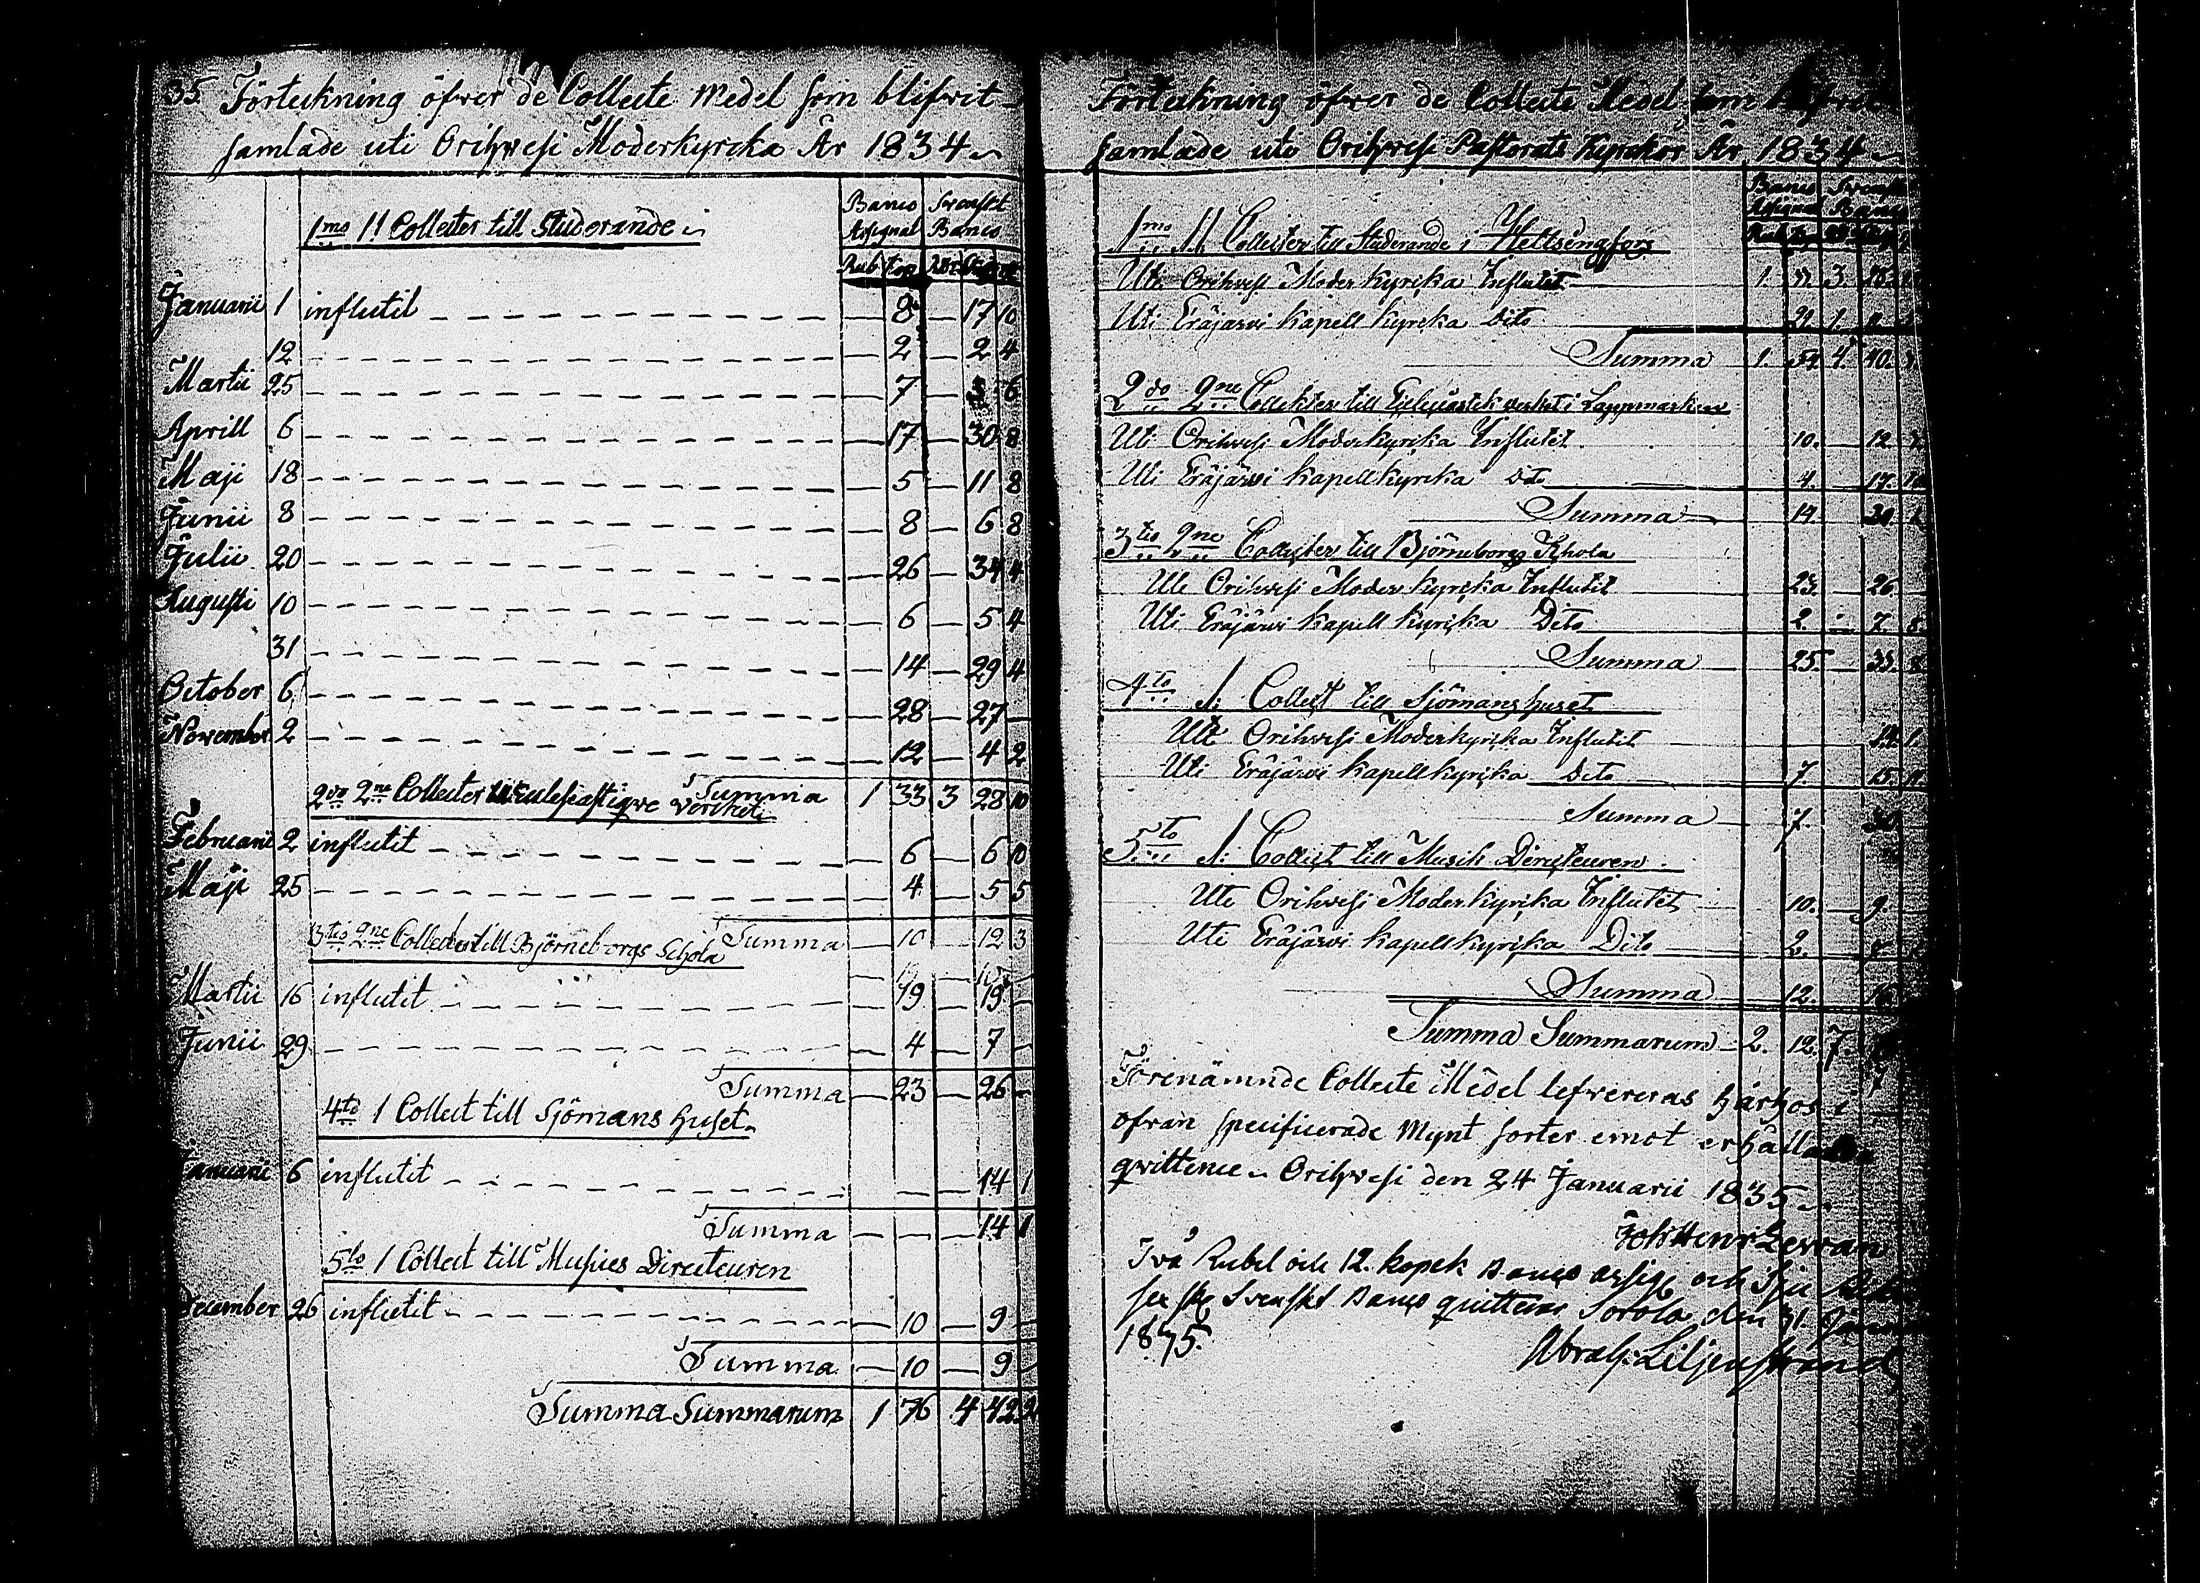 35. Förteckning öfver de Collecte Medel som blifvit
samlade uti Orihvesi Moderkyrcka År 1834
1mo 11 Collecter till Studerande
Banco Assignat Svenskt Banco
Rub kop Rdr
Januarii 1 influtit — 8 — 17 10
12 — 2 — 2 4
Martii 25 — 7 — 3 6
Aprill 6 — 17 — 30 8
Maji 18 — 5 — 11 8
Junii 8 — 8 — 6 8
Julii 20 — 26 — 34 4
Augusti 10 — 6 — 5 4
31 — 14 — 29 4
October 6 — 28 — 27 —
November 2 — 12 — 4 2
Summa 1 33 3 28 10
2do 2ne Collecter till Eclesiastiqve Verket
Februarii 2 influtit — 6 — 6 10
Maji 25 — 4 — 5 5
Summa — 10 — 12 3
3tio 2ne Collecter till Björneborgs Schola
Martii 16 influtit — 19 — 19 —
Junii 29 — 4 — 7 —
Summa — 23 — 26 —
4to 1 Collect till Sjömans huset
Januarii 6 influtit — — — 14 1
Summa — — — 14 1
5to 1 Collect till Musics Directeuren
December 26 influtit — 10 — 9 —
Summa — 10 — 9 —
Summa Summarum 1 76 4 42 2
Förteckning öfver de Collecte Medel som
samlade uti Orihvesi Pastorats Kyrckor År 1834
Banco Assignat Svenskt Banco
1mo 11 Collecter till Studerande i Hellsingfors
Uti Orihvesi Moderkyrcka Influtit 1. 33. 3. 28.
Uti Eräjärvi Kapell kyrcka Dito 21. 1.
Summa 1. 54. 4. 40.
2do 2ne Collekter till Eclesiastik verket i Lappmarken
Uti Orihvesi Moderkyrcka Influtit 10. 12.
Uti Eräjärvi Kapellkyrcka Dito 4. 17.
Summa 14.
3tio 2ne Collecter till Björneborgs Schola
Uti Orihvesi Moderkyrcka Influtit 23. 26.
Uti Eräjärvi Kapell kyrcka Dito 2. 7. 8
Summa 25. 33. 8
4to 1. Collect till Sjömans huset
Uti Orihvesi Moderkyrcka Influtit 14. 1.
Uti Eräjärvi Kapellkyrcka Dito 7. 15.
Summa 7.
5to 1. Collect till Musik Directeuren
Uti Orihvesi Moderkyrcka Influtit 10. 9.
Uti Eräjärvi Kapellkyrcka Dito 2.
Summa 12.
Summa Summarum 2. 12. 7.
Förenämnde Collecte Medel lefvereras härhos i
ofvan specificerade Mynt sorter emot erhållande
qvittence Orihvesi den 24 Januarii 1835
Joh Henr
Två Rubel och 12. kopek Banco assign och Sju
sex sk Svenskt Banco quitteras Sorola den 31.
1835.
Abrah: Liljenstrand